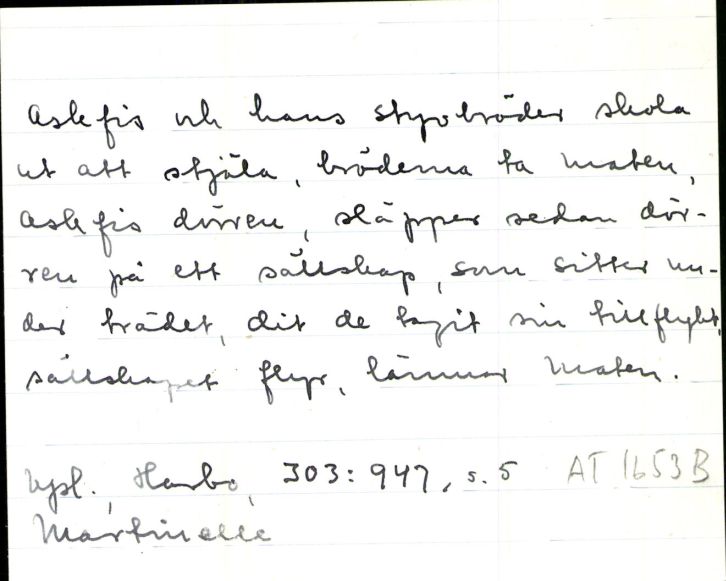 Askfis och hans styvbröder skola
ut att stjäla, bröderna ta maten,
Askfis dörren, släpper sedan dör-
ren på ett sällskap, som sitter un-
der trädet, dit de tagit sin tillflykt,
sällskapet flyr, lämnar maten.
Uppl., Harbo, 303: 947, s. 5 AT 1653 B
Martinelle